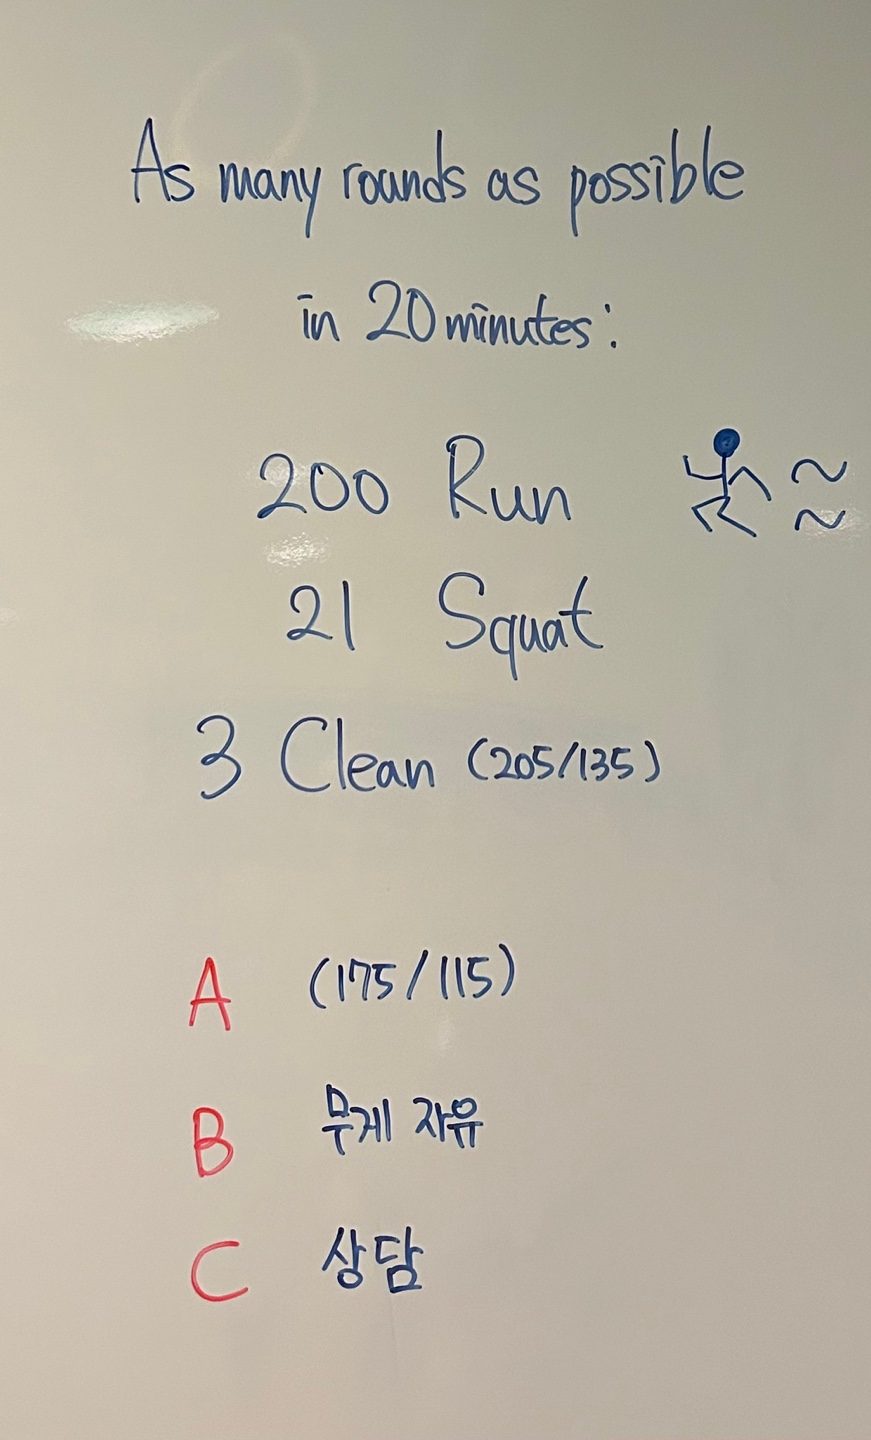 As many rounds as possible
in 20 minutes:
200 Run
21 Squat
3 Clean (205/135)
A (175/115)
B 무게 자유
C 상담